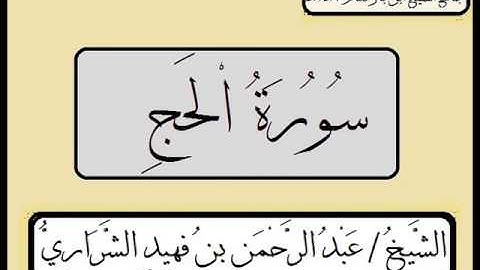 سُورَةُ الْحَجِ
الشَّيْخُ / عَبْدُ الرَّحْمَنِ بنُ فُهيدٍ الشَّرَارِيُّ